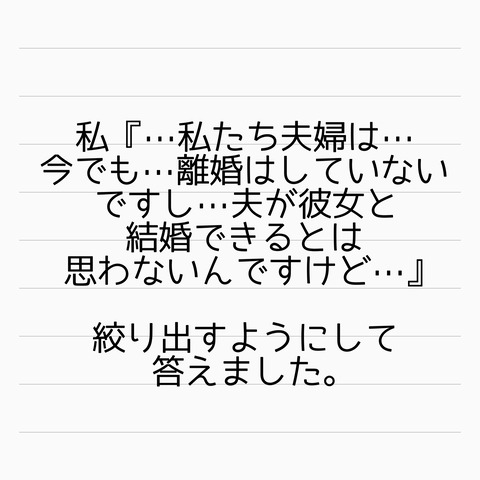 私『…私たち夫婦は…
今でも…離婚はしていない
ですし…夫が彼女と
結婚できるとは
思わないんですけど…』
絞り出すようにして
答えました。